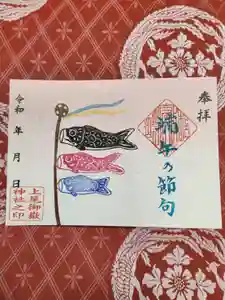 奉拝
端午の節句
令和 年 月 日
上星御嶽
神社之印